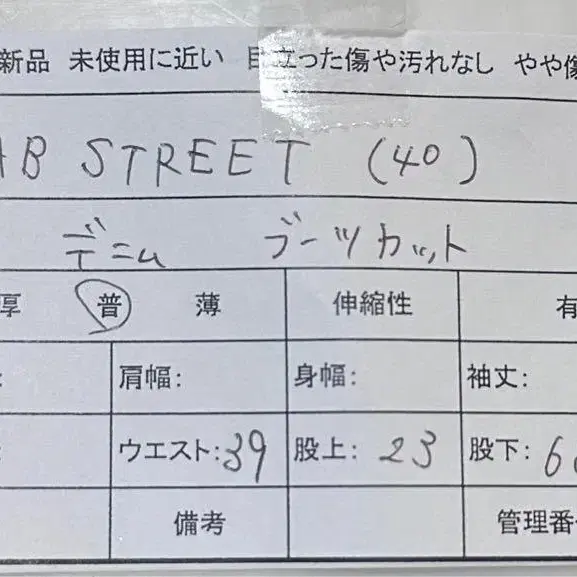 新品 未使用に近い 目立った傷や汚れなし やや傷
AB STREET (40)
デニム ブーツカット
厚 普 薄 伸縮性 有
: 肩幅: 身幅: 袖丈:
: ウエスト:39 股上: 23 股下: 6
備考 管理番